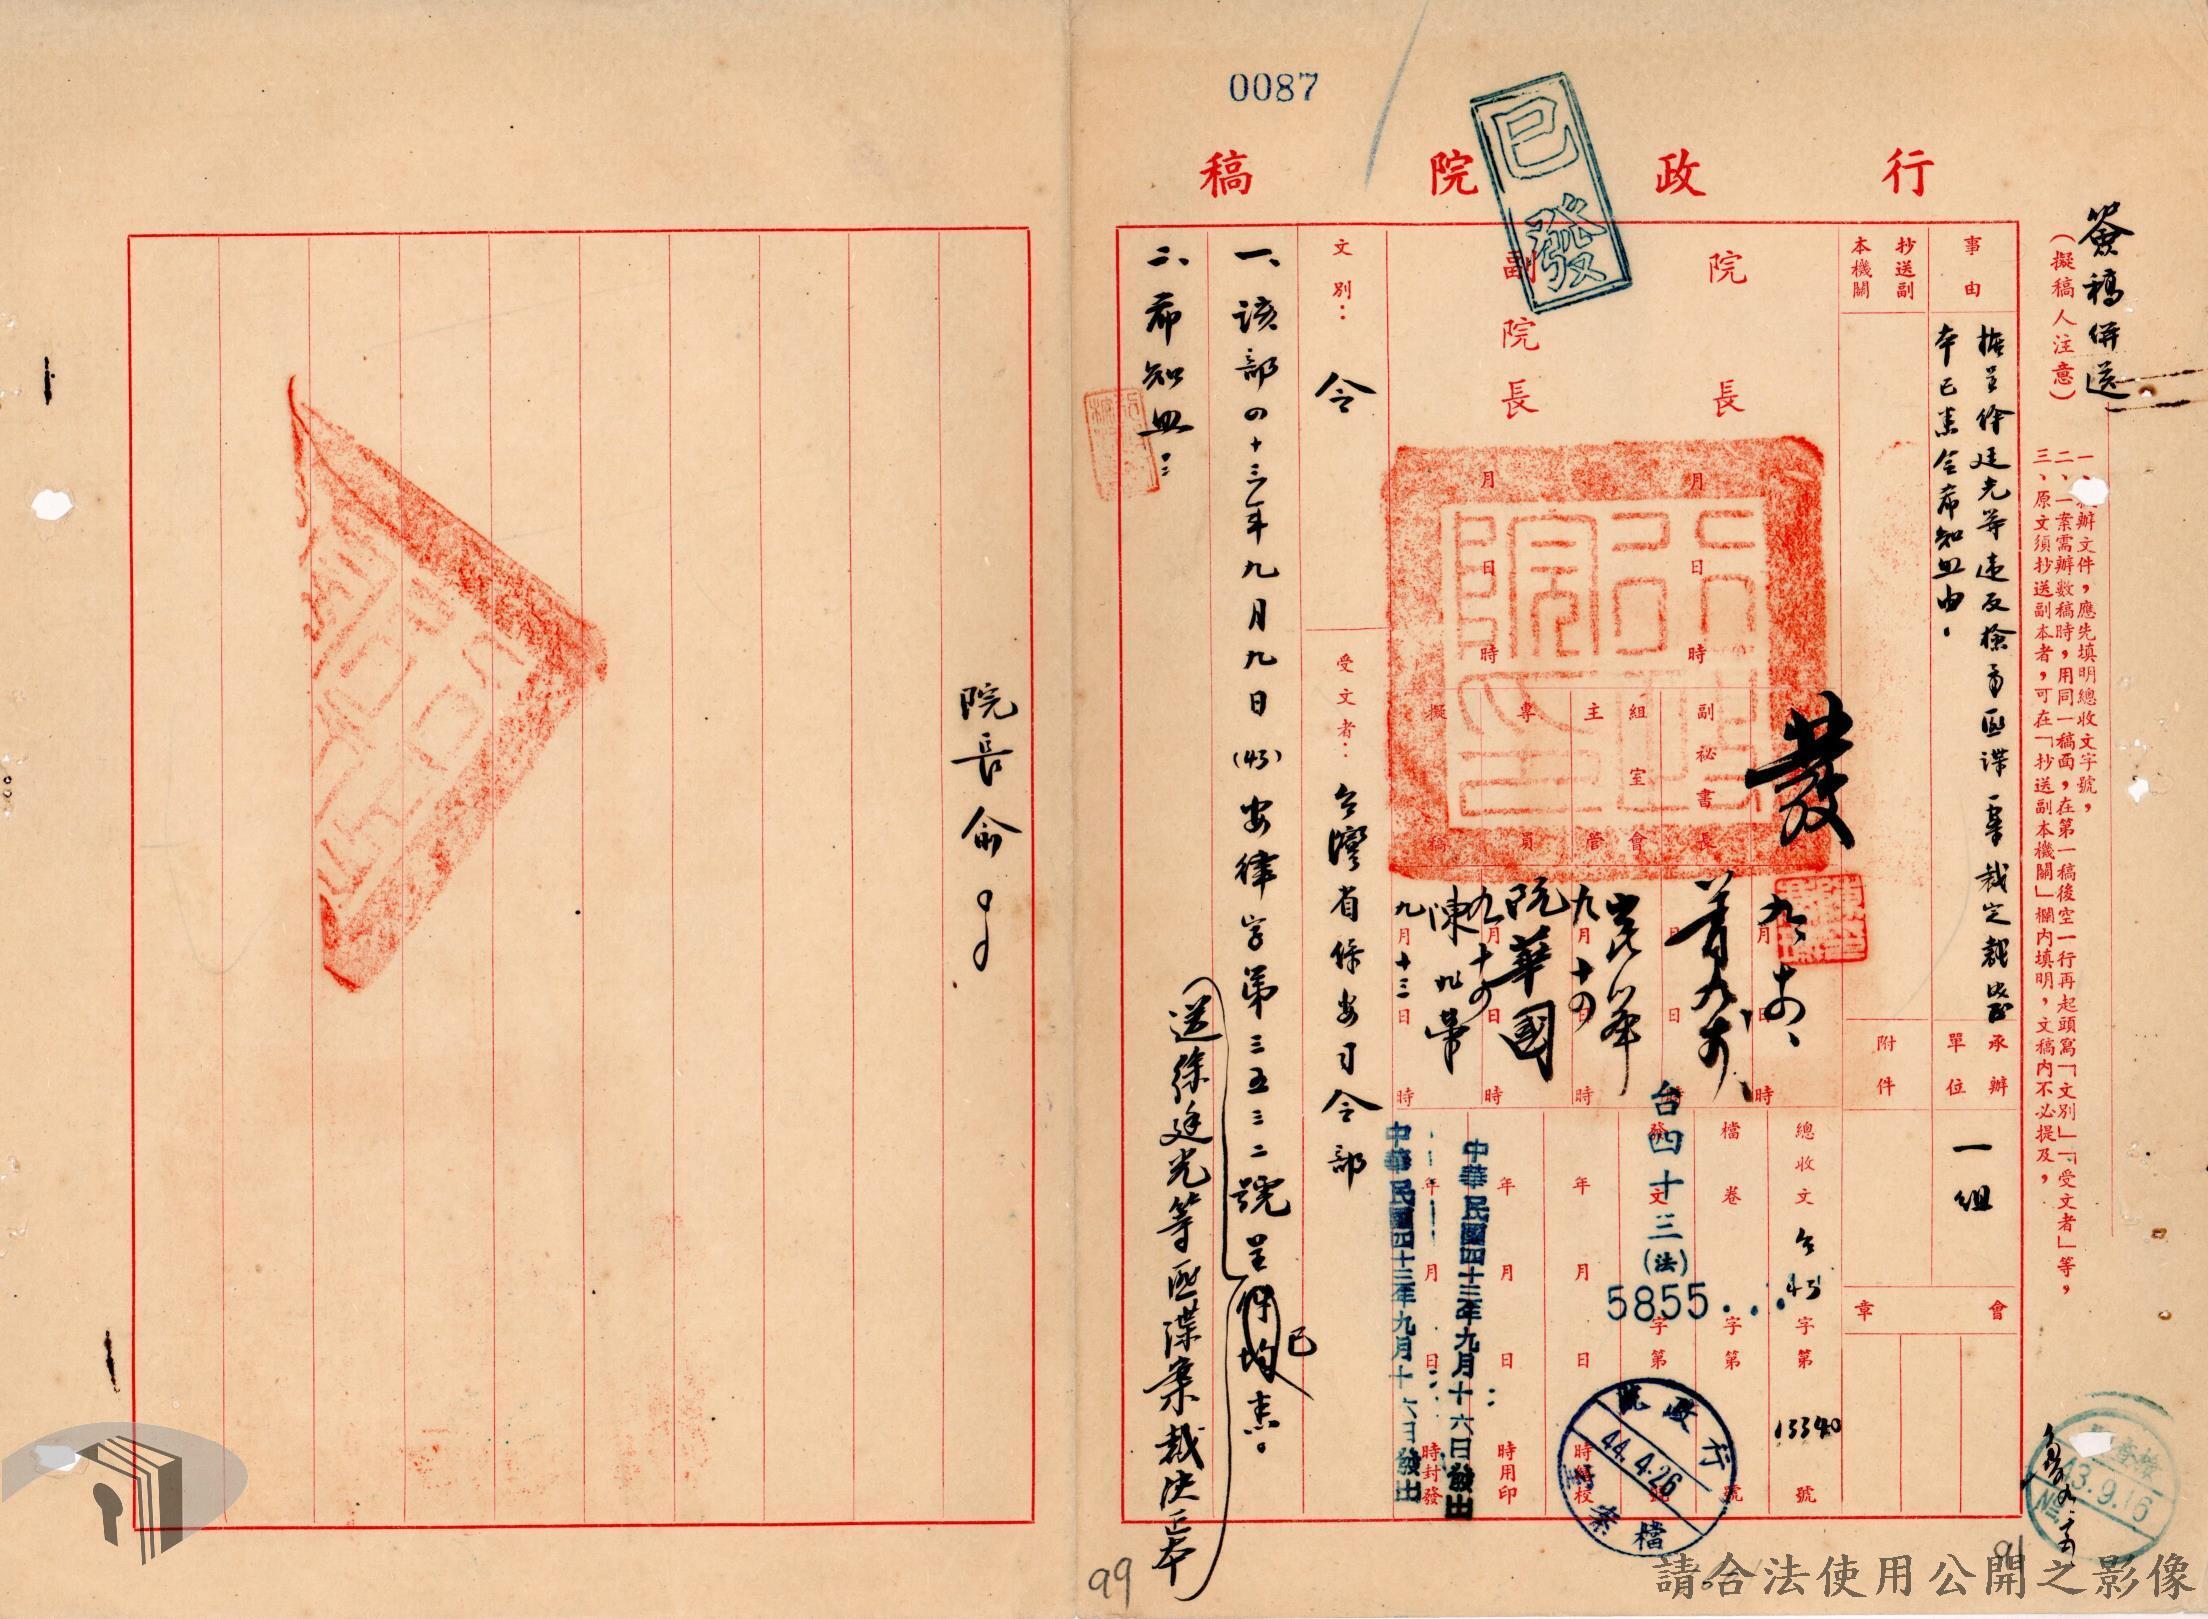 0087
已發
行政院稿
簽稿併送
(擬稿人注意)
辦文件,應先填明總收文字號,
二、一案需辦數稿時,用同一稿面,在第一稿後空一行再起頭寫「文別」「受文者」等,
三、原文須抄送副本者,可在「抄送副本機關」欄內填明,文稿內不必提及,
事由
據呈徐廷光等違反檢肅匪諜一案裁定裁決
本已悉令希知照由。
抄送副
本機關
承辦
單位
一組
附件
會
章
院長
副院長
月日時
月日時
發
副秘書長
組室會
主管
專員
擬稿
阮華國
九月十四日
九月十四日
九月十三日
總收文 台43字第13340號
檔卷 字第 號
發文 字第 號
台四十三(法)
5855
年月日時繕校
年月日時用印
年月日時封發
中華民國四十三年九月十六日發出
中華民國四十三年九月十六日發出
行政院
44.4.26
檔案
43.9.16
文別:令
受文者:台灣省保安司令部
一、該部四十三年九月九日(43)安律字第三五三二號呈件均已悉。
送徐廷光等匪諜案裁決正本
二、希知照:
院長俞
行政院印
99
91
請合法使用公開之影像